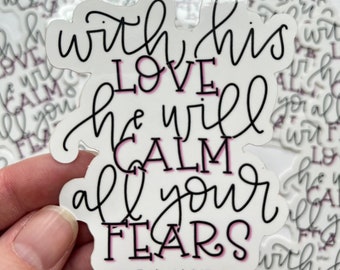 with his
LOVE
he will
CALM
all your
FEARS